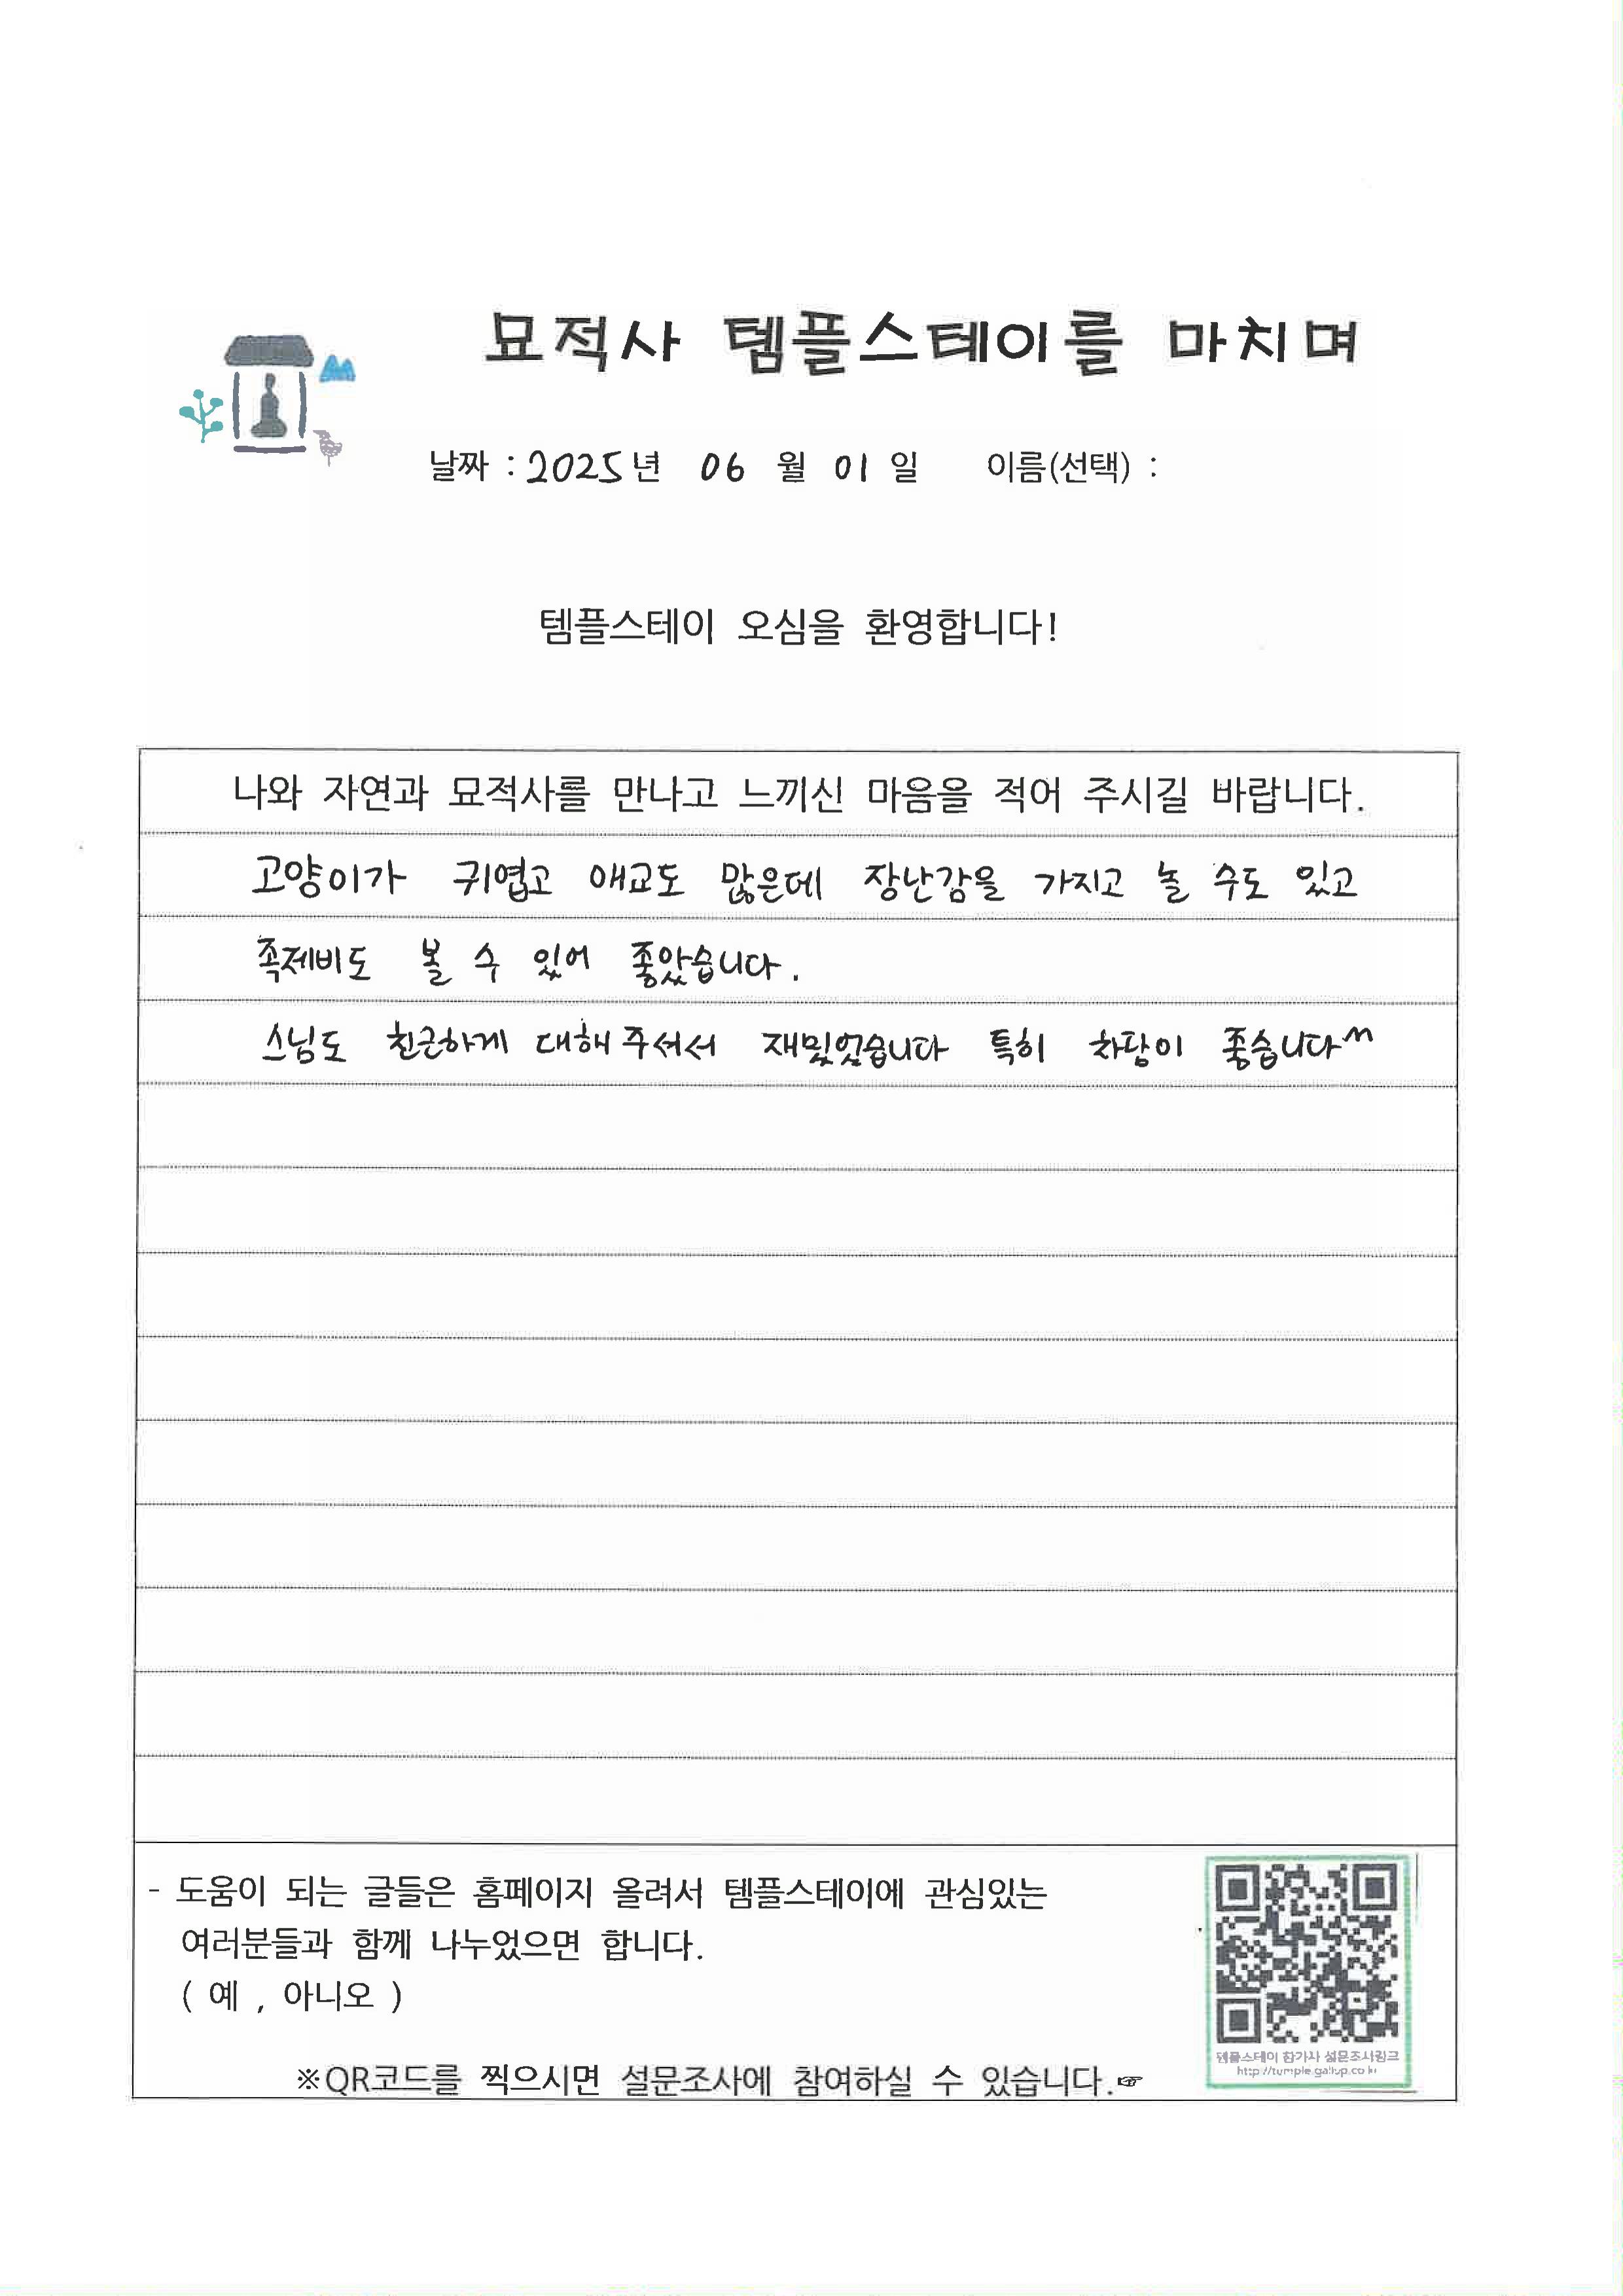 묘적사 템플스테이를 마치며
날짜 : 2025년 06 월 01 일 이름(선택) :
템플스테이 오심을 환영합니다!
나와 자연과 묘적사를 만나고 느끼신 마음을 적어 주시길 바랍니다.
고양이가 귀엽고 애교도 많은데 장난감을 가지고 놀 수도 있고
족제비도 볼 수 있어 좋았습니다.
스님도 친근하게 대해 주셔서 재밌었습니다 특히 차담이 좋습니다^^
- 도움이 되는 글들은 홈페이지 올려서 템플스테이에 관심있는
여러분들과 함께 나누었으면 합니다.
( 예 , 아니오 )
※QR코드를 찍으시면 설문조사에 참여하실 수 있습니다.☞
템플스테이 참가자 설문조사링크